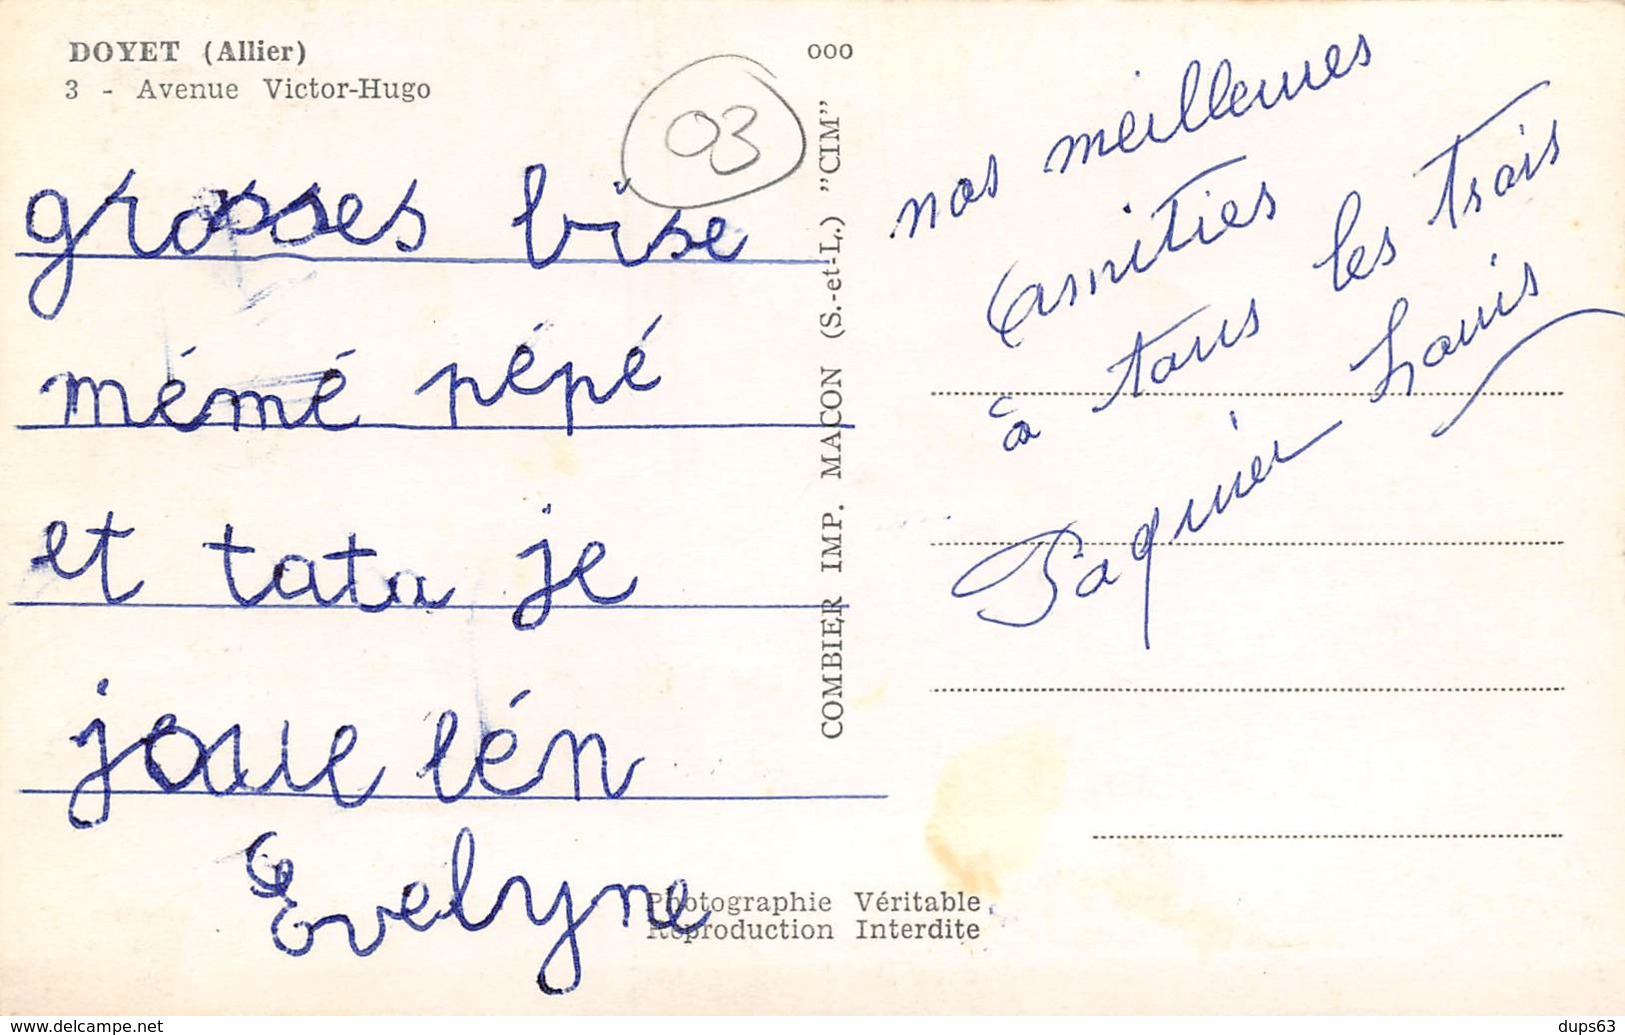 DOYET (Allier)
3 - Avenue Victor-Hugo
000
03
grosses bise
mémé pépé
et tata je
joue lén
Evelyne
COMBIER IMP. MACON (S.-et-L.) "CIM"
nos meilleures
amitiés
à tous les trois
Paquier Louis
Photographie Véritable
Reproduction Interdite
www.delcampe.net
dups63